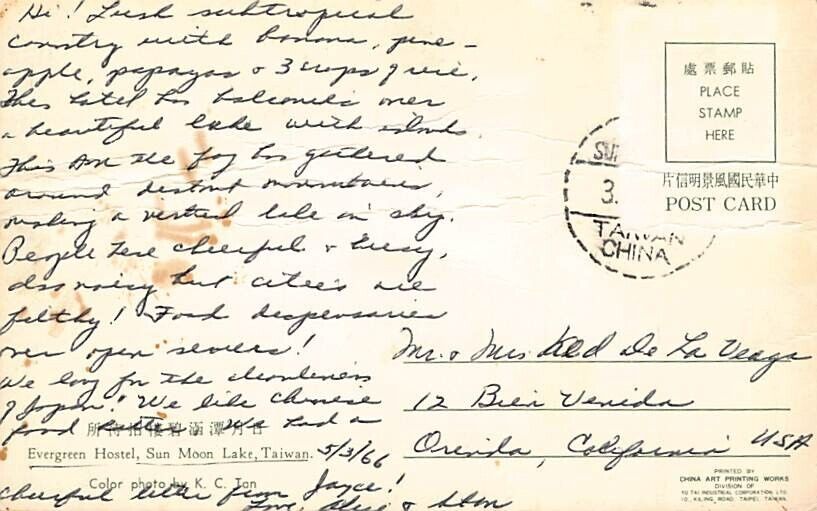 Hi! Lush subtropical
country with banana, pine-
apple, papayas & 3 crops of rice.
This hotel has balconies over
a beautiful lake with islands.
This AM the fog has gathered
around distant mountains,
making a vertical lake in sky.
People here cheerful & busy,
also noisy but cities are
filthy! Food dispensaries
over open sewers!
We long for the cleanliness
of Japan. We like Chinese
food We had a
cheerful letter from Joyce!
Love, & Stan
Evergreen Hostel, Sun Moon Lake, Taiwan. 5/3/66
Color photo by K. C. Tan
處票郵貼
PLACE
STAMP
HERE
片信明景風國民華中
POST CARD
3.
TAIWAN
CHINA
Mr. & Mrs. De La Veaga
12 Bien Venida
Orinda, California USA
PRINTED BY
CHINA ART PRINTING WORKS
DIVISION OF
YU TAI INDUSTRIAL CORPORATION LTD.
10, KILING ROAD, TAIPEI, TAIWAN.